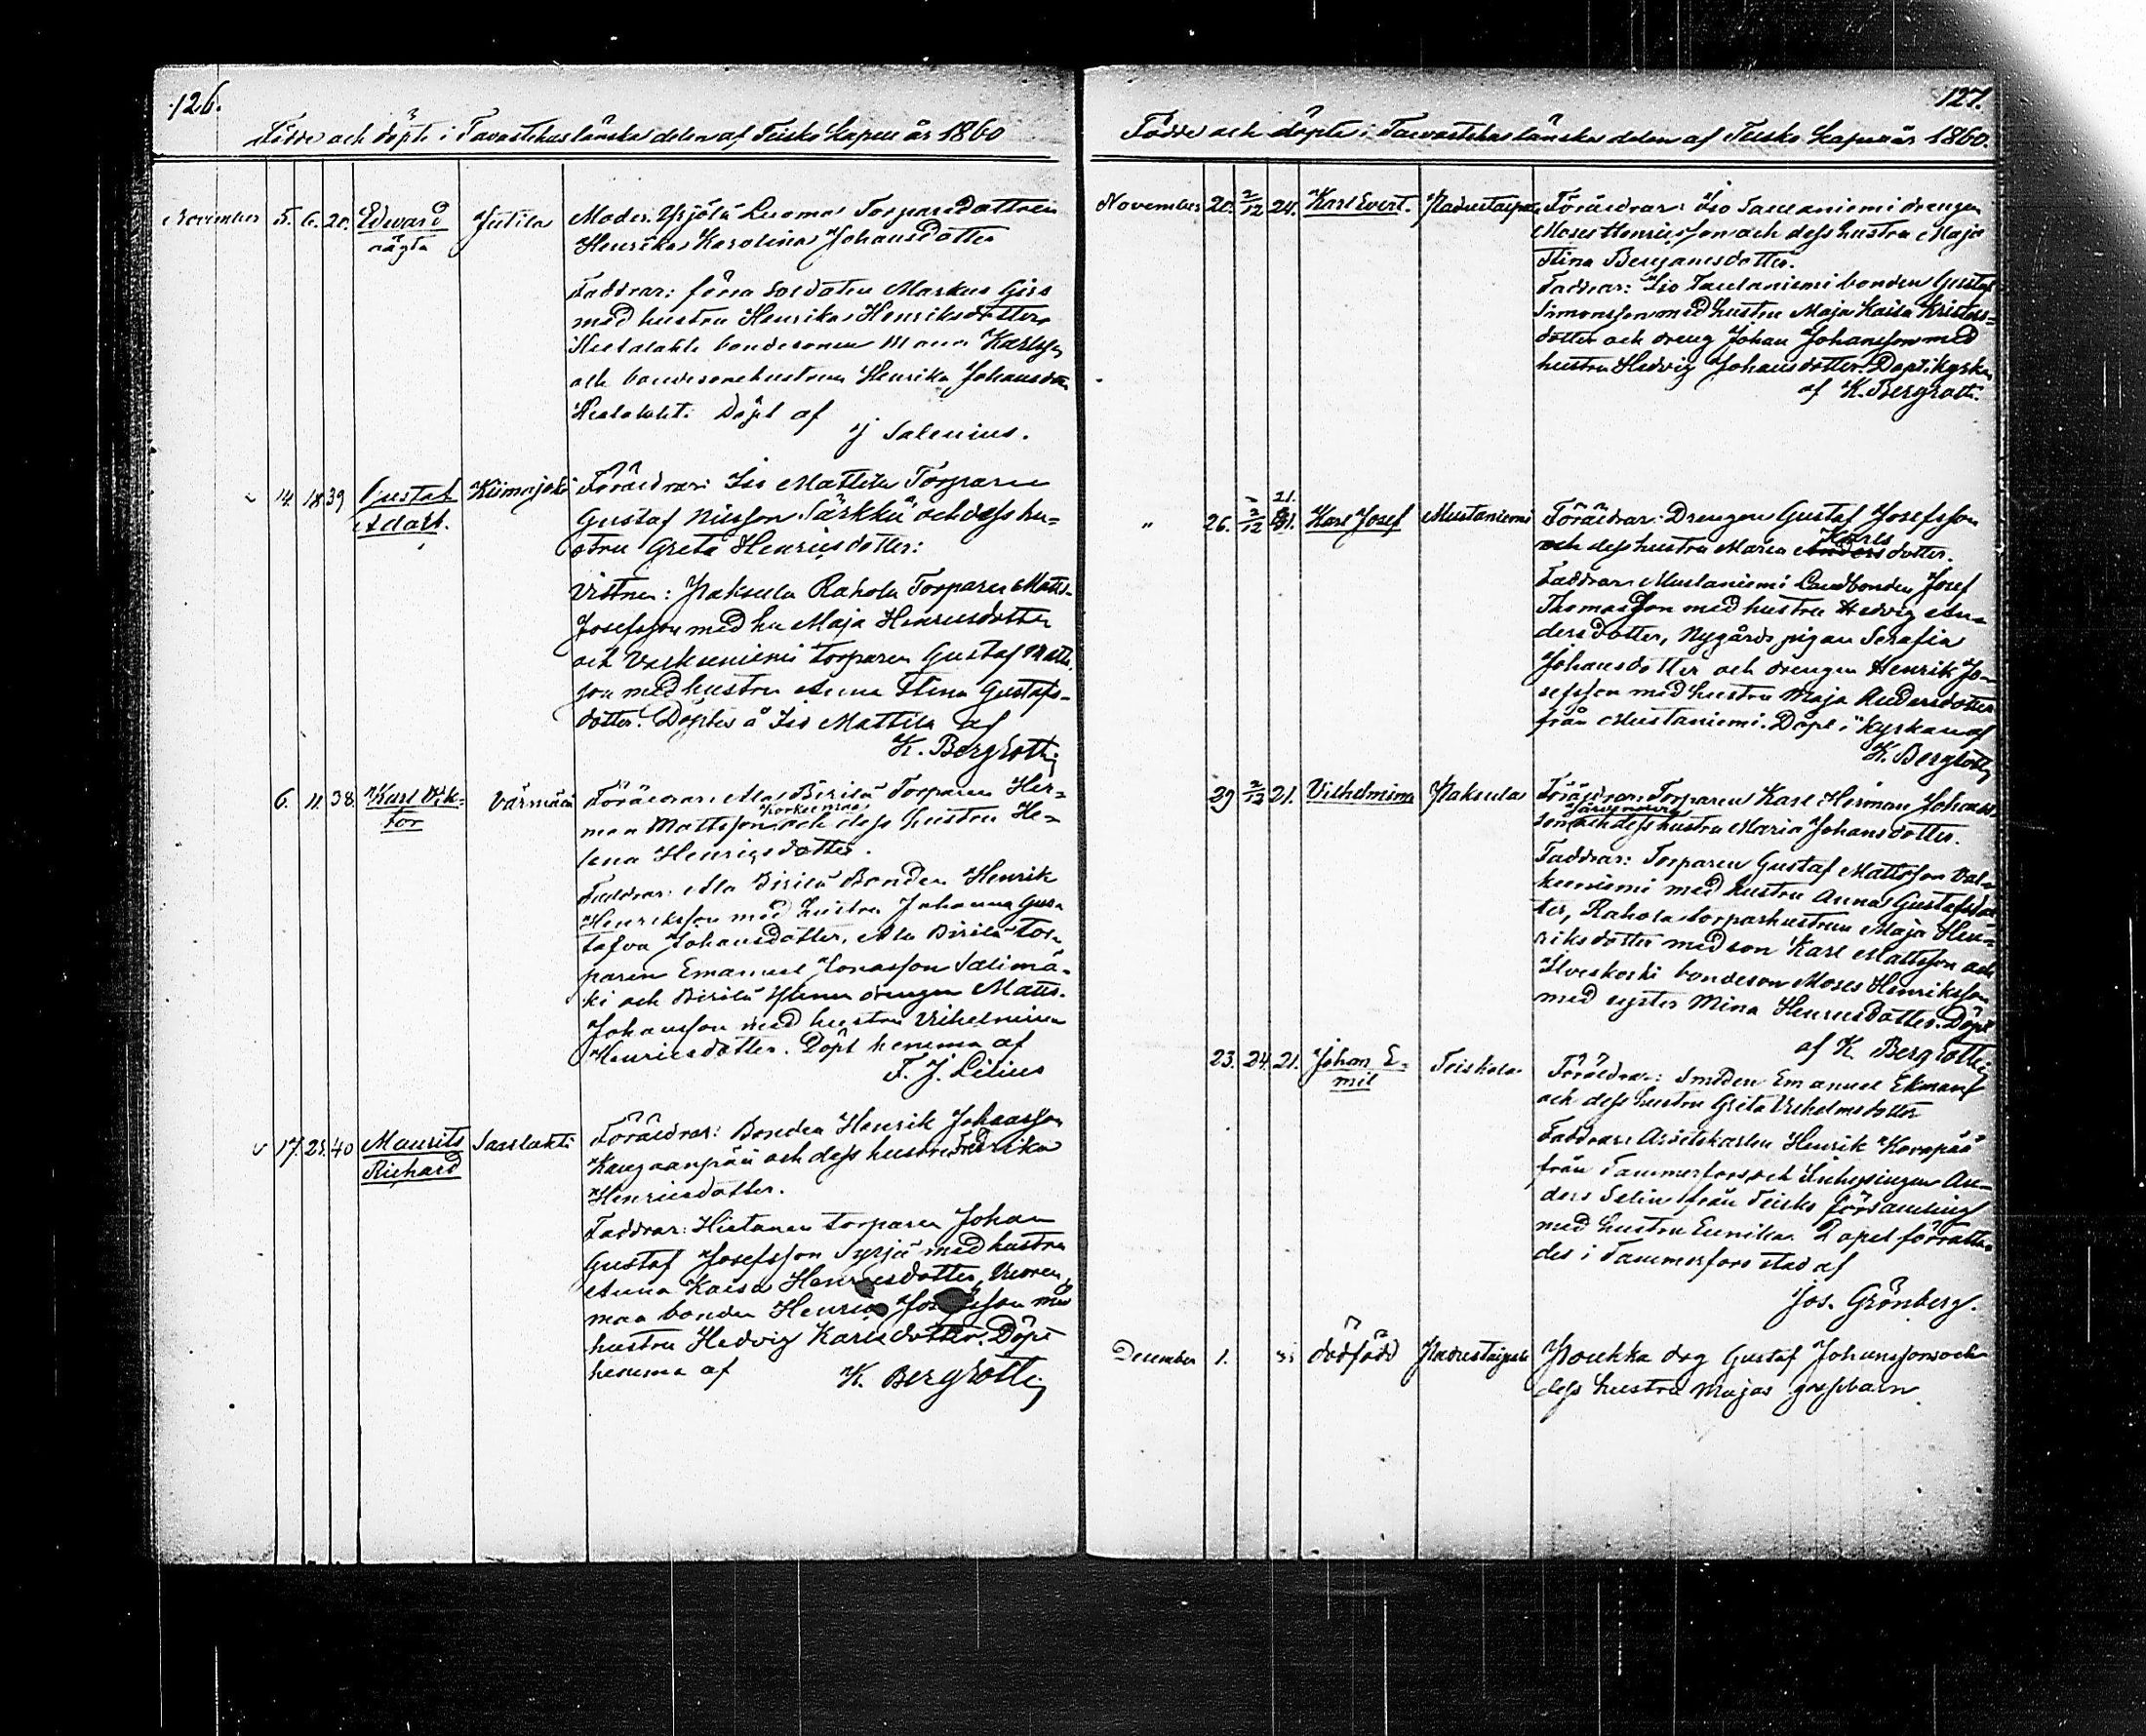 126.
Födde och döpte i Tavastehus länska delen af Teisko Kapell år 1860
November 5. 6. 20. Edward Jutila Moder: Yrjölä Luoma Torpare Dottren
oägta Henrika Karolina Johansdotter
Faddrar: förra Soldaten Markus Girs
med hustru Henrika Henriksdotter,
bondesonen Karlsson
och bondesonehustrun Henrika Johansdotter
Döpt af
J Salenius.
14. 18 39 Gustaf Kiimajoki Föräldrar: Iso Mattila Torparen
Adolf. Gustaf Nilsson Särkkä och dess hu=
stru Greta Henricsdotter:
Vittnen: Paksula Rahola Torparen Matts
Josefsson med hu Maja Henricsdotter
och Valkeeniemi torparen Gustaf Matts
son med hustru Anna Stina Gustafs=
dotter. Döptes å Iso Mattila af
K. Bergroth
6. 11. 38. Karl Vik= Värmälä Föräldrar: Ala Pirilä Torparen Her=
tor man Mattsson och dess hustru He=
lena Henricsdotter.
Faddrar: Ala Pirilä Bonden Henrik
Henriksson med hustru Johanna Gus=
tafva Johansdotter, Ala Pirilä Tor=
paren Emanuel Jonasson Salimä=
ki och Pirilä Ylinen drengen Matts
Johansson med hustru Vilhelmina
Henricsdotter. Döpt hemma af
F. J. Lilius
17. 25. 40 Maurits Saarlahti Föräldrar: Bonden Henrik Johansson
Richard Kangaanpää och dess hustru Fredrika
Henricsdotter.
Faddrar: Hietanen torparen Johan
Gustaf Josefsson Syrjä med hustru
Anna Kaisa Henricsdotter, Vuoren
maa bonden Henric Josefsson med
hustru Hedvig Karlsdotter. Döpt
hemma af K. Bergroth
127.
Födde och döpte i Tavastehus länska delen af Teisko Kapell år 1860.
November 20. 2/12 24. Karl Evert. Padustaipale Föräldrar: Iso Saulaniemi drengen
Moses Henricsson och dess hustru Maja
Stina Benjamsdotter.
Faddrar: Iso Saulaniemi bonden Gustaf
Simonsson med hustru Maja Kaisa Kristers=
dotter och dreng Johan Johansson med
hustru Hedvig Johansdotter. Döpt i kyrkan
af K. Bergroth.
" 26. 2/12 21. Karl Josef Mustaniemi Föräldrar: Drengen Gustaf Josefsson
Karls
och dess hustru Maria Andersdotter.
Faddrar: Mustaniemi Landbonden Josef
Thomasson med hustru Hedvig An=
dersdotter, Nygårds pigan Serafia
Johansdotter och drengen Henrik Jo=
sefsson med hustru Maja Andersdotter
från Mustaniemi. Döpt i kyrkan af
K. Bergroth
29 2/12 21. Vilhelmina Paksula Föräldrar: Torparen Karl Herman Johans
son och dess hustru Maria Johansdotter.
Faddrar: Torparen Gustaf Mattsson Val=
keeniemi med hustru Anna Gustafsdot
ter, Rahola torparhustrun Maja Hen=
riksdotter med son Karl Mattsson och
Ilveskoski bondeson Moses Henriksson
med syster Mina Henricsdotter. Döpt
af K. Bergroth
23. 24. 21. Johan E= Teiskola Föräldrar: Smeden Emanuel Ekman
mil och dess hustru Greta Vilhelmsdotter
Faddrar: Arbetskarlen Henrik Korvpää
från Tammerfors och An=
ders Selin från Teisko församling
med hustru Eunika. Dopet förrätta=
des i Tammerfors stad af
Jos. Grönberg.
December 1. dödfödd Padustaipale Poukka drg Gustaf Johansson och
dess hustru Majas gossebarn